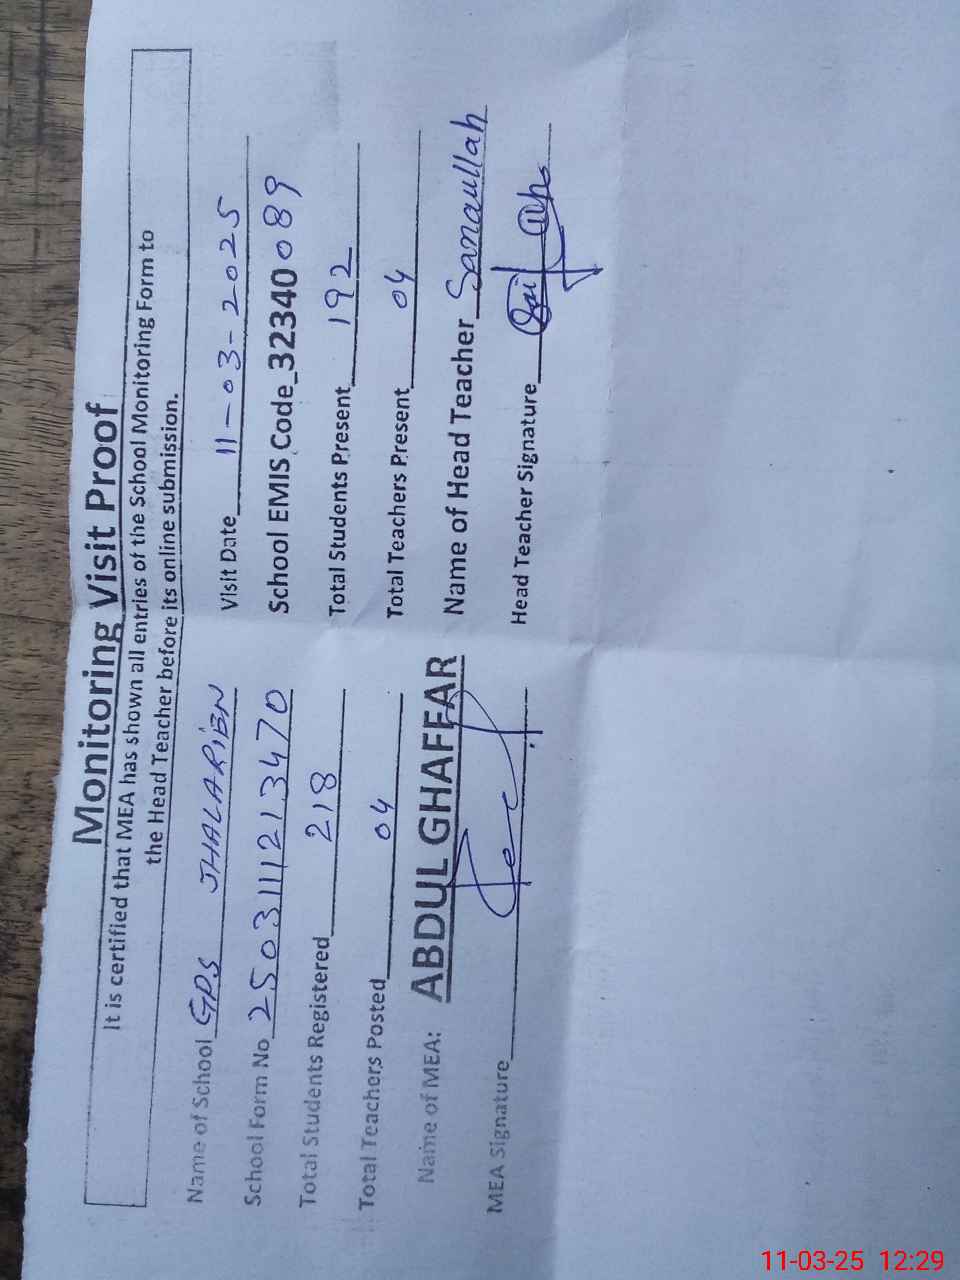 Monitoring Visit Proof
It is certified that MEA has shown all entries of the School Monitoring Form to
the Head Teacher before its online submission.
Name of School GPS JHALARIEN Visit Date 11-03-2025
School Form No. 250311121213470 School EMIS Code 32340089
Total Students Registered 218 Total Students Present 192
Total Teachers Posted 04 Total Teachers Present 04
Name of MEA: ABDUL GHAFFAR Name of Head Teacher Sanaullah
MEA Signature Head Teacher Signature
11-03-25 12:29